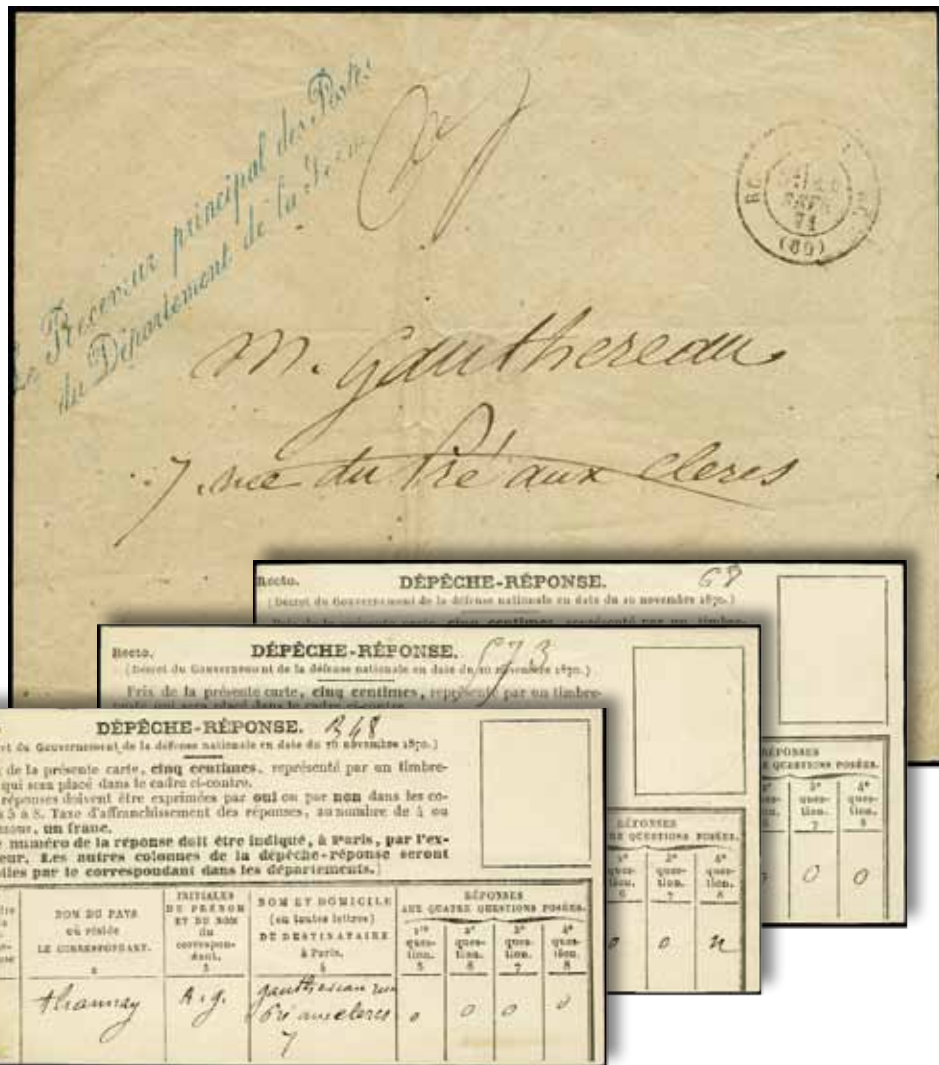 Le Receveur principal des Postes
du Département de la
(60)
M. Gauthereau
7. rue du Pré aux clercs
Recto. DÉPÊCHE-RÉPONSE. 68
(Décret du Gouvernement de la défense nationale en date du 10 novembre 1870.)
Prix de la présente carte, cinq centimes, représenté par un timbre-
RÉPONSES
QUESTIONS POSÉES.
3e ques-tion. 7
4e ques-tion. 8
0 0
Recto. DÉPÊCHE-RÉPONSE. 573
(Décret du Gouvernement de la défense nationale en date du 10 novembre 1870.)
Prix de la présente carte, cinq centimes, représenté par un timbre-
poste qui sera placé dans le cadre ci-contre.
RÉPONSES
QUESTIONS POSÉES.
2e ques-tion. 6
3e ques-tion. 7
4e ques-tion. 8
0 0 n
DÉPÊCHE-RÉPONSE. 348
et du Gouvernement de la défense nationale en date du 10 novembre 1870.)
de la présente carte, cinq centimes, représenté par un timbre-
qui sera placé dans le cadre ci-contre.
réponses doivent être exprimées par oui ou par non dans les co-
5 à 8. Taxe d'affranchissement des réponses, au nombre de 4 ou
un franc.
numéro de la réponse doit être indiqué, à Paris, par l'ex-
eur. Les autres colonnes de la dépêche-réponse seront
plies par le correspondant dans les départements.)
NOM DU PAYS
où réside
LE CORRESPONDANT.
2
INITIALES
DU PRÉNOM
ET DU NOM
du
correspon-
dant.
3
NOM ET DOMICILE
(en toutes lettres)
DU DESTINATAIRE
à Paris.
4
RÉPONSES
AUX QUATRE QUESTIONS POSÉES.
1re ques-tion. 5
2e ques-tion. 6
3e ques-tion. 7
4e ques-tion. 8
A. g.
gauthereau rue
Pré aux clercs
7
0 0 0 0